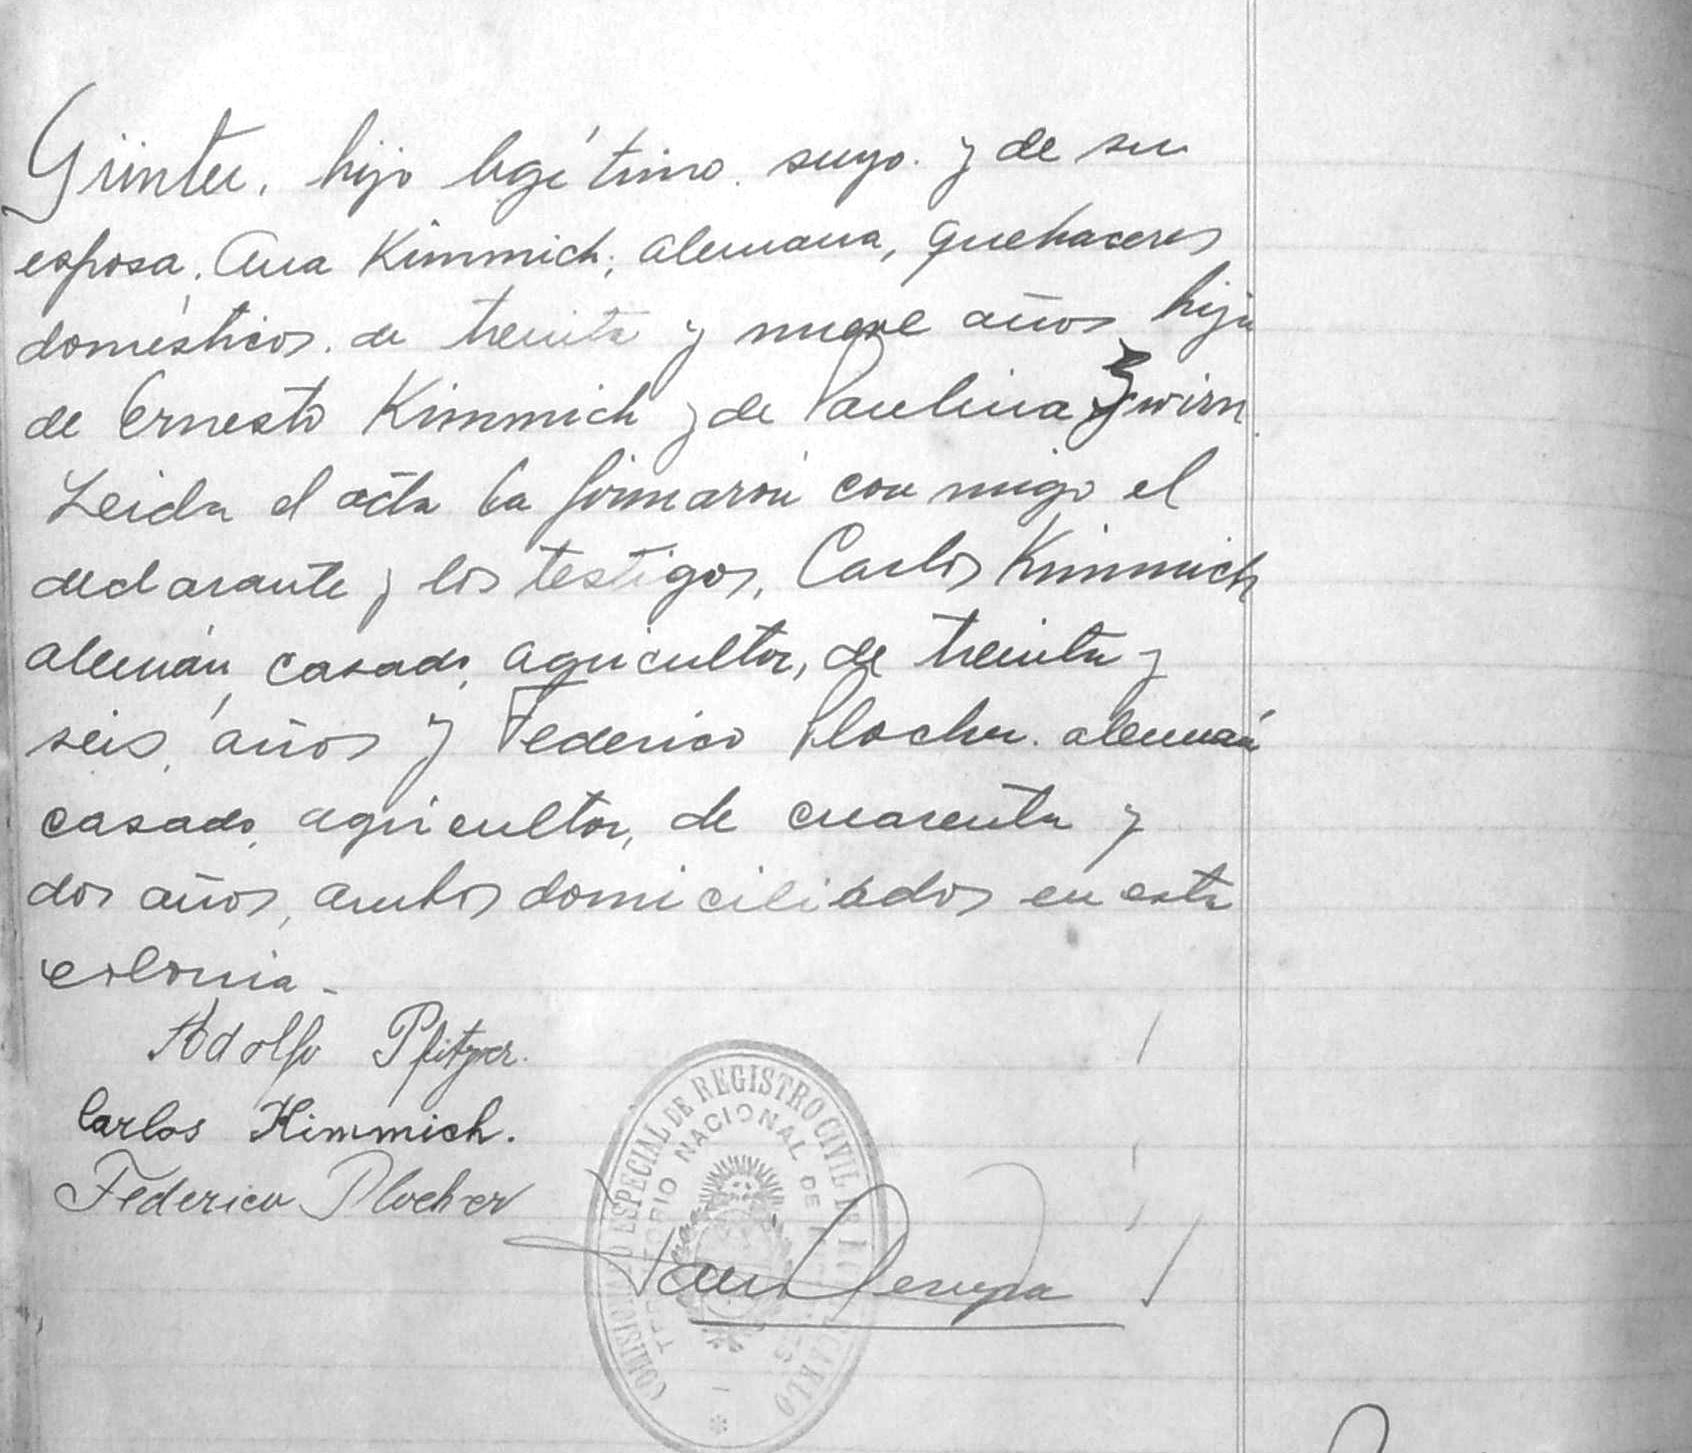 Günter, hijo legítimo suyo y de su
esposa, Ana Kimmich, alemana, quehaceres
domésticos, de treinta y nueve años hija
de Ernesto Kimmich y de Paulina Zwirn.
Leida el acta la firmaron con migo el
declarante y los testigos, Carlos Kimmich
alemán, casado, agricultor, de treinta y
seis, años y Federico Plocher. alemán
casado, agricultor, de cuarenta y
dos años, ambos domiciliados en esta
colonia.-
Adolfo Pfitzer.
Carlos Kimmich.
Federico Plocher
ESPECIAL DE REGISTRO CIVIL
TERRITORIO NACIONAL DE